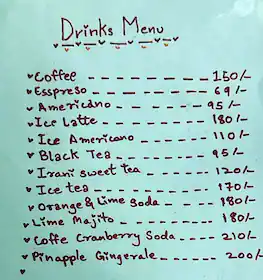 Drinks Menu
Coffee ---------- 150/-
Esspreso -------- 69/-
Americano ------- 95/-
Ice Latte ------- 180/-
Ice Americano ---- 110/-
Black Tea ------- 95/-
Irani sweet tea ---- 120/-
Ice tea -------- 170/-
Orange & Lime Soda -- 180/-
Lime Majito ------ 180/-
Coffe Cranberry Soda --- 210/-
Pinapple Gingerale --- 200/-